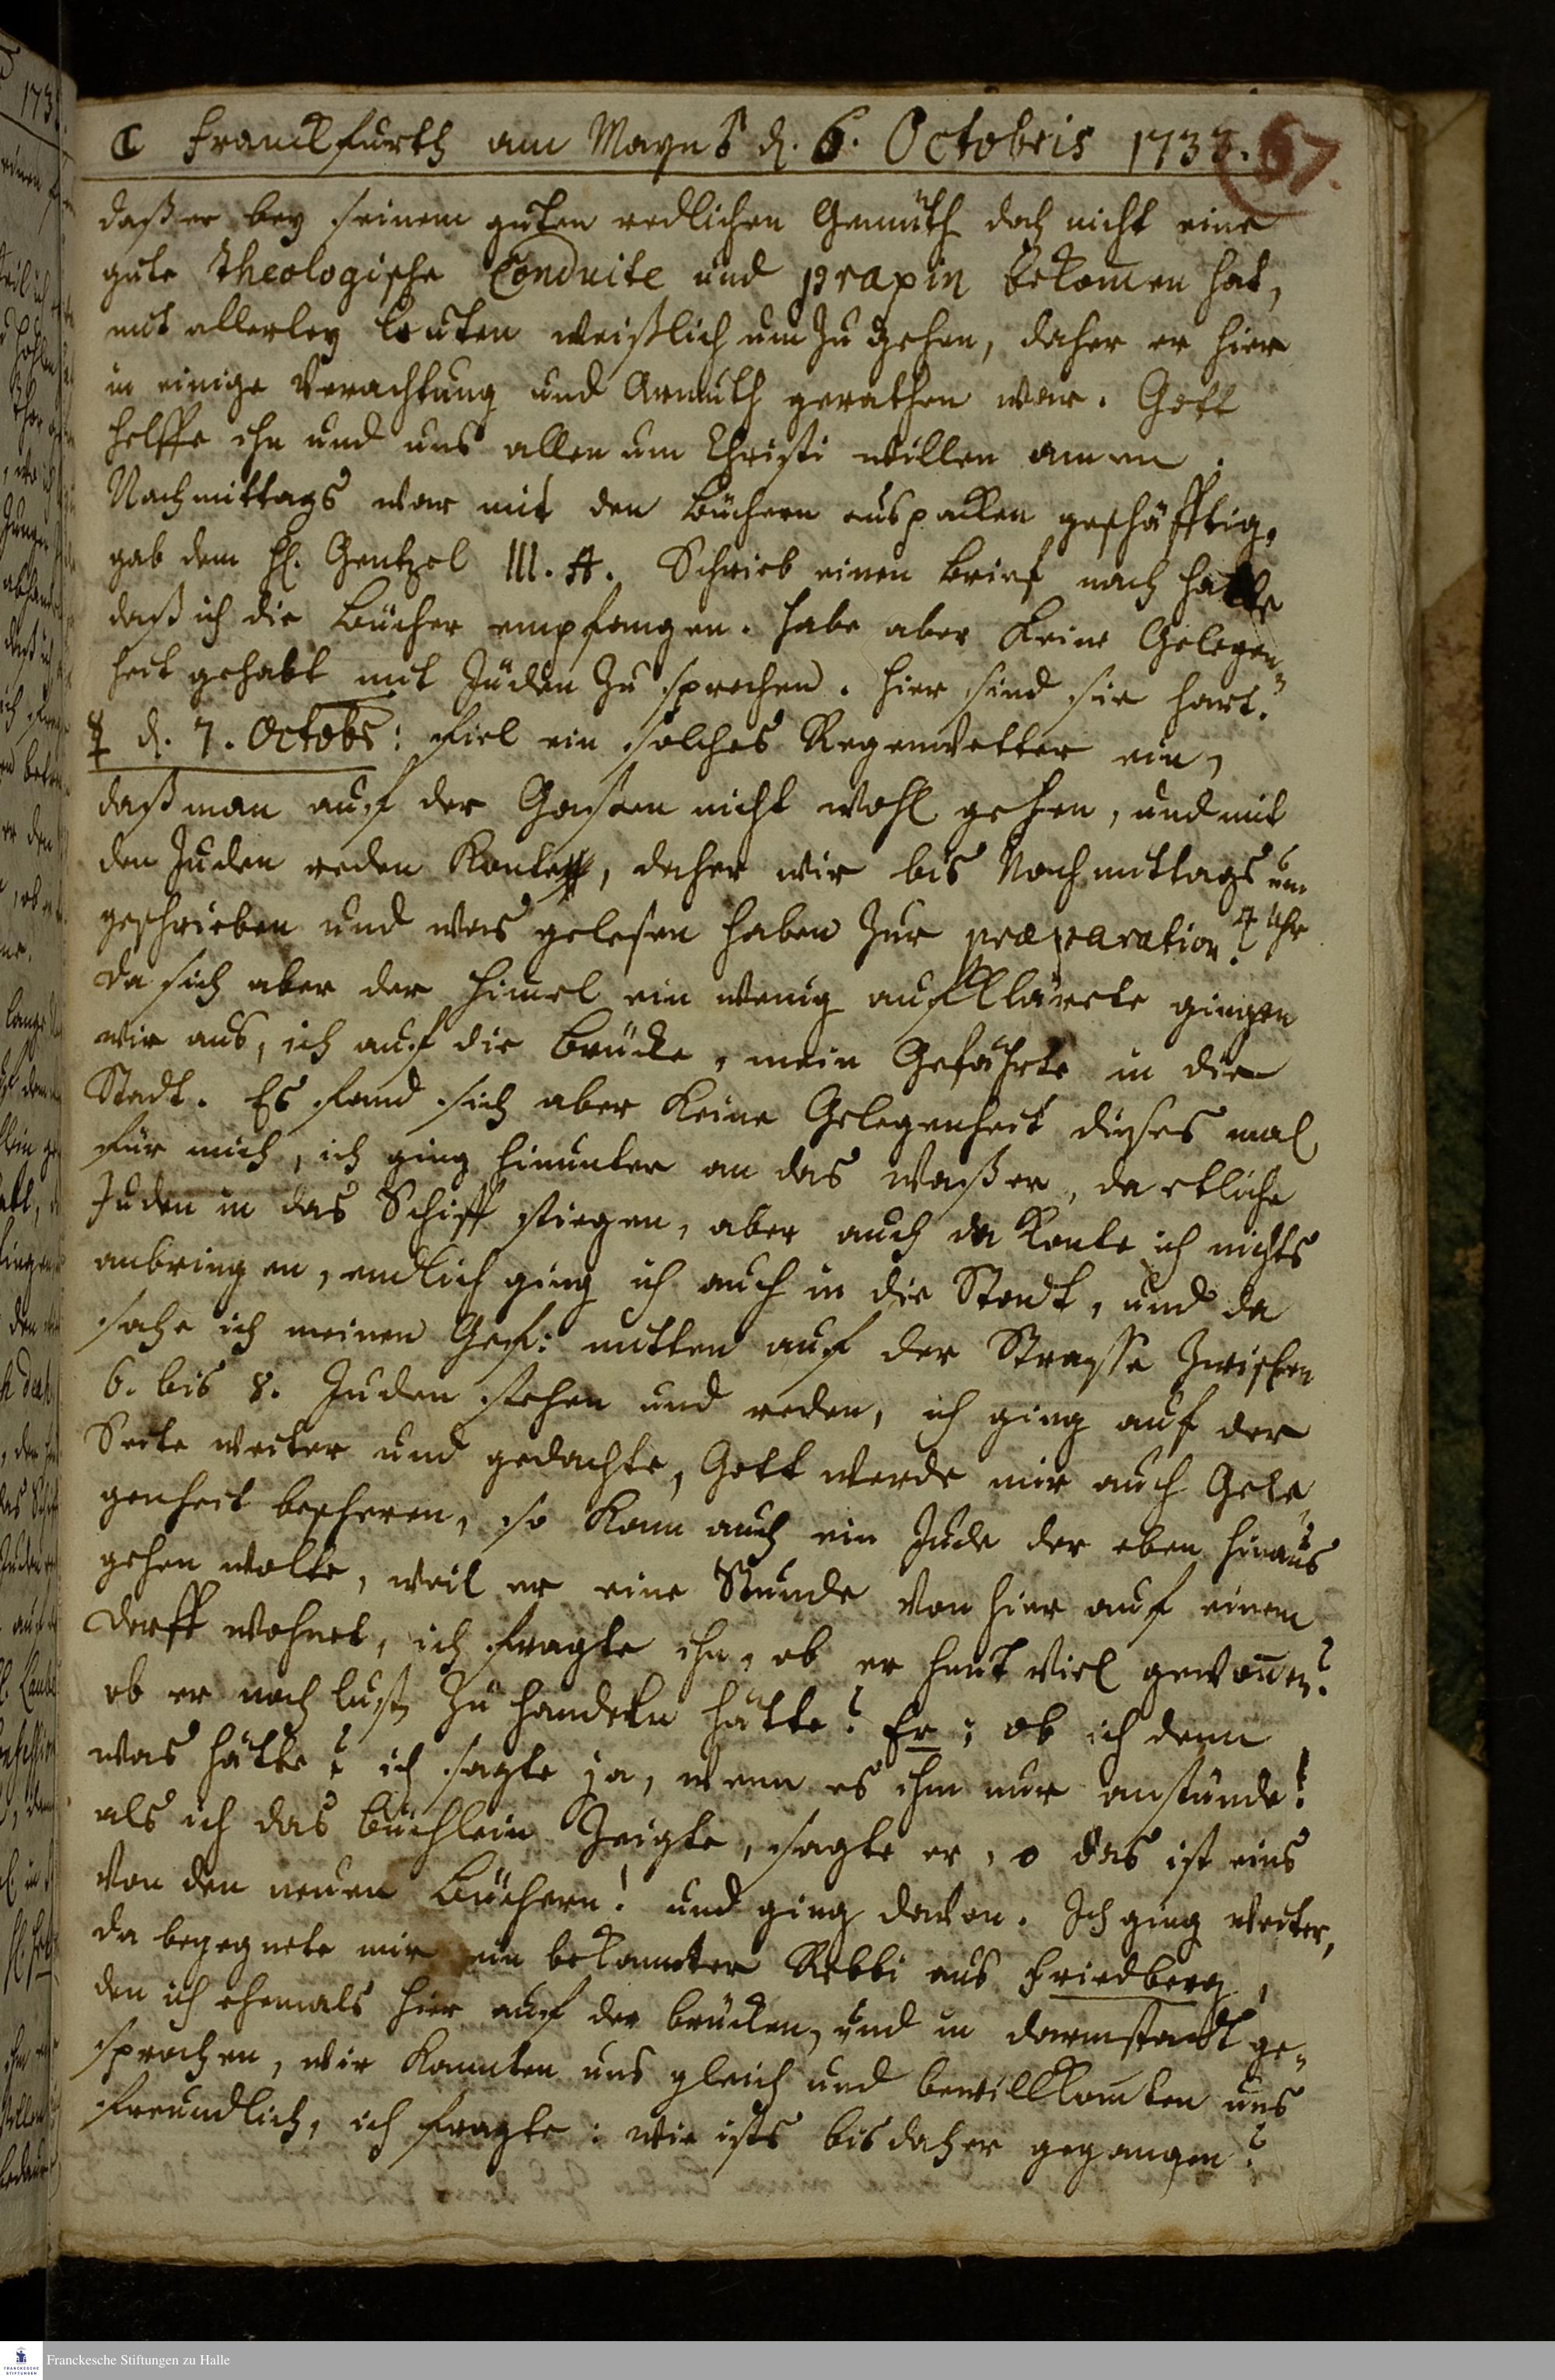 ☾ Franckfurth am Mayn d. 6. Octobris 1738. 67.
daß er bey seinem guten redlichen Gemüth doch nicht eine
gute theologische Conduite und praxin bekomen hat,
mit allerley leuten weißlich um zu gehen, daher er hier
in einige Verachtung und Armuth gerathen war. Gott
helffe ihn und uns allen um Christi willen amen.
Nachmittags war mit den Büchern auspacken geschäfftig,
gab dem H. Gentzel III. A. Schrieb einen brief nach Halle
daß ich die Bücher empfangen. habe aber keine Gelegen-
heit gehabt mit Jüden zu sprechen. hier sind sie hart.
d. 7. Octobr: fiel ein solches Regenwetter ein,
daß man auf der Gassen nicht wohl gehen, und mit
den Juden reden konte, daher wir bis Nachmittags um
geschrieben und was gelesen haben zur præparation. 4 Uhr
da sich aber der Himel ein wenig aufklärete gingen
wir aus, ich auf die brücke, mein Gefährte in die
Stadt. Es fand sich aber keine Gelegenheit dieses mal
für mich, ich ging hinunter an das waßer, da etliche
Juden in das Schiff stiegen, aber auch da konte ich nichts
anbringen, endlich ging ich auch in die Stadt, und da
sahe ich meinen Gef: mitten auf der Strasse zwischen
6. bis 8. Juden stehen und reden, ich ging auf der
Seite weiter und gedachte, Gott werde mir auch Gele-
genheit bescheren, so kam auch ein Jude der eben hinaus
gehen wolte, weil er eine Stunde von hier auf einem
dorff wohnet, ich fragte ihn, ob er heut viel gewonnen?
ob er noch lust zu handeln hätte? Er: ob ich denn
was hätte? ich sagte ja, wenn es ihm nur anstünde!
als ich das büchlein zeigte, sagte er, o das ist eins
von den neuen Büchern! und ging davon. Ich ging weiter,
da begegnete mir ein bekannter Rebbi aus Friedberg,
den ich ehemals hier auf der brücken, und in darmstadt ge-
sprochen, wir kannten uns gleich und bewillkomten uns
freundlich, ich fragte: wie ists bisdaher gegangen?
Franckesche Stiftungen zu Halle